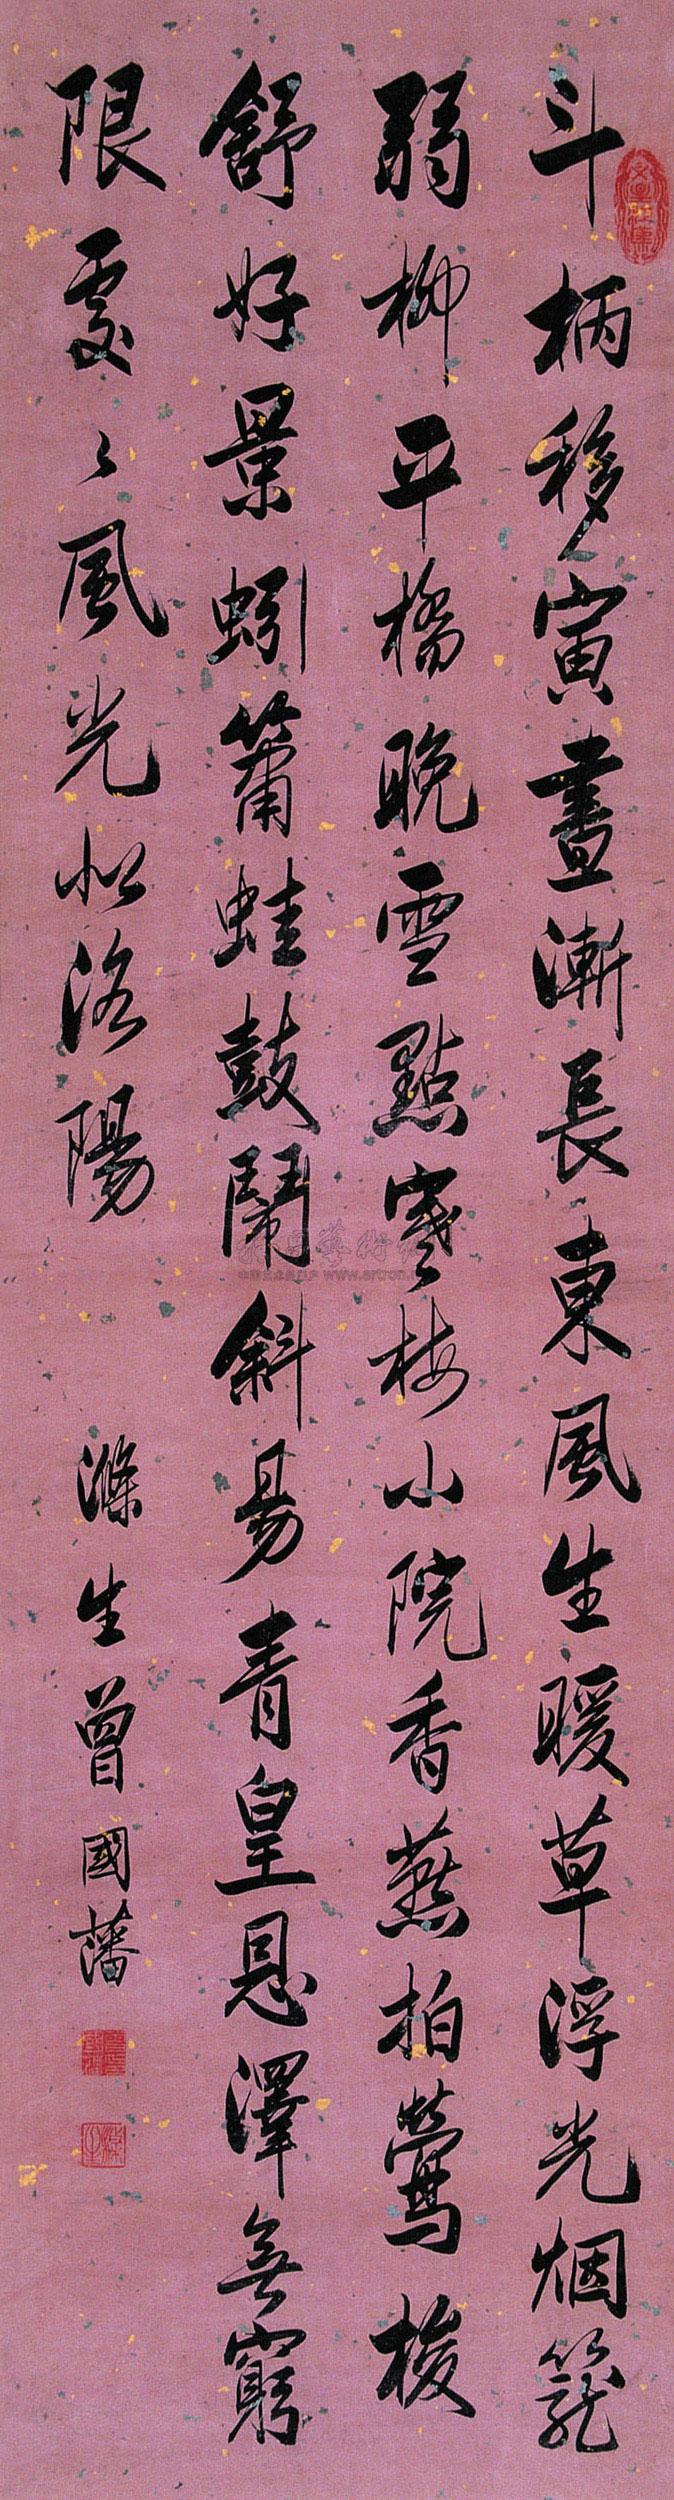 斗柄移寅晝漸長東風生暖草浮光烟籠
弱柳平橋晚雪點寒梅小院香燕拍鶯梭
舒好景蚓簫蛙鼓鬧斜昜青皇恩澤無窮
限處〻風光似洛陽
滌生曾國藩
www.artron.